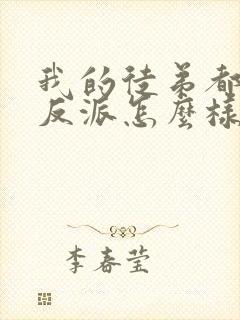 我的徒弟都
反派怎麼樣
李春瑩